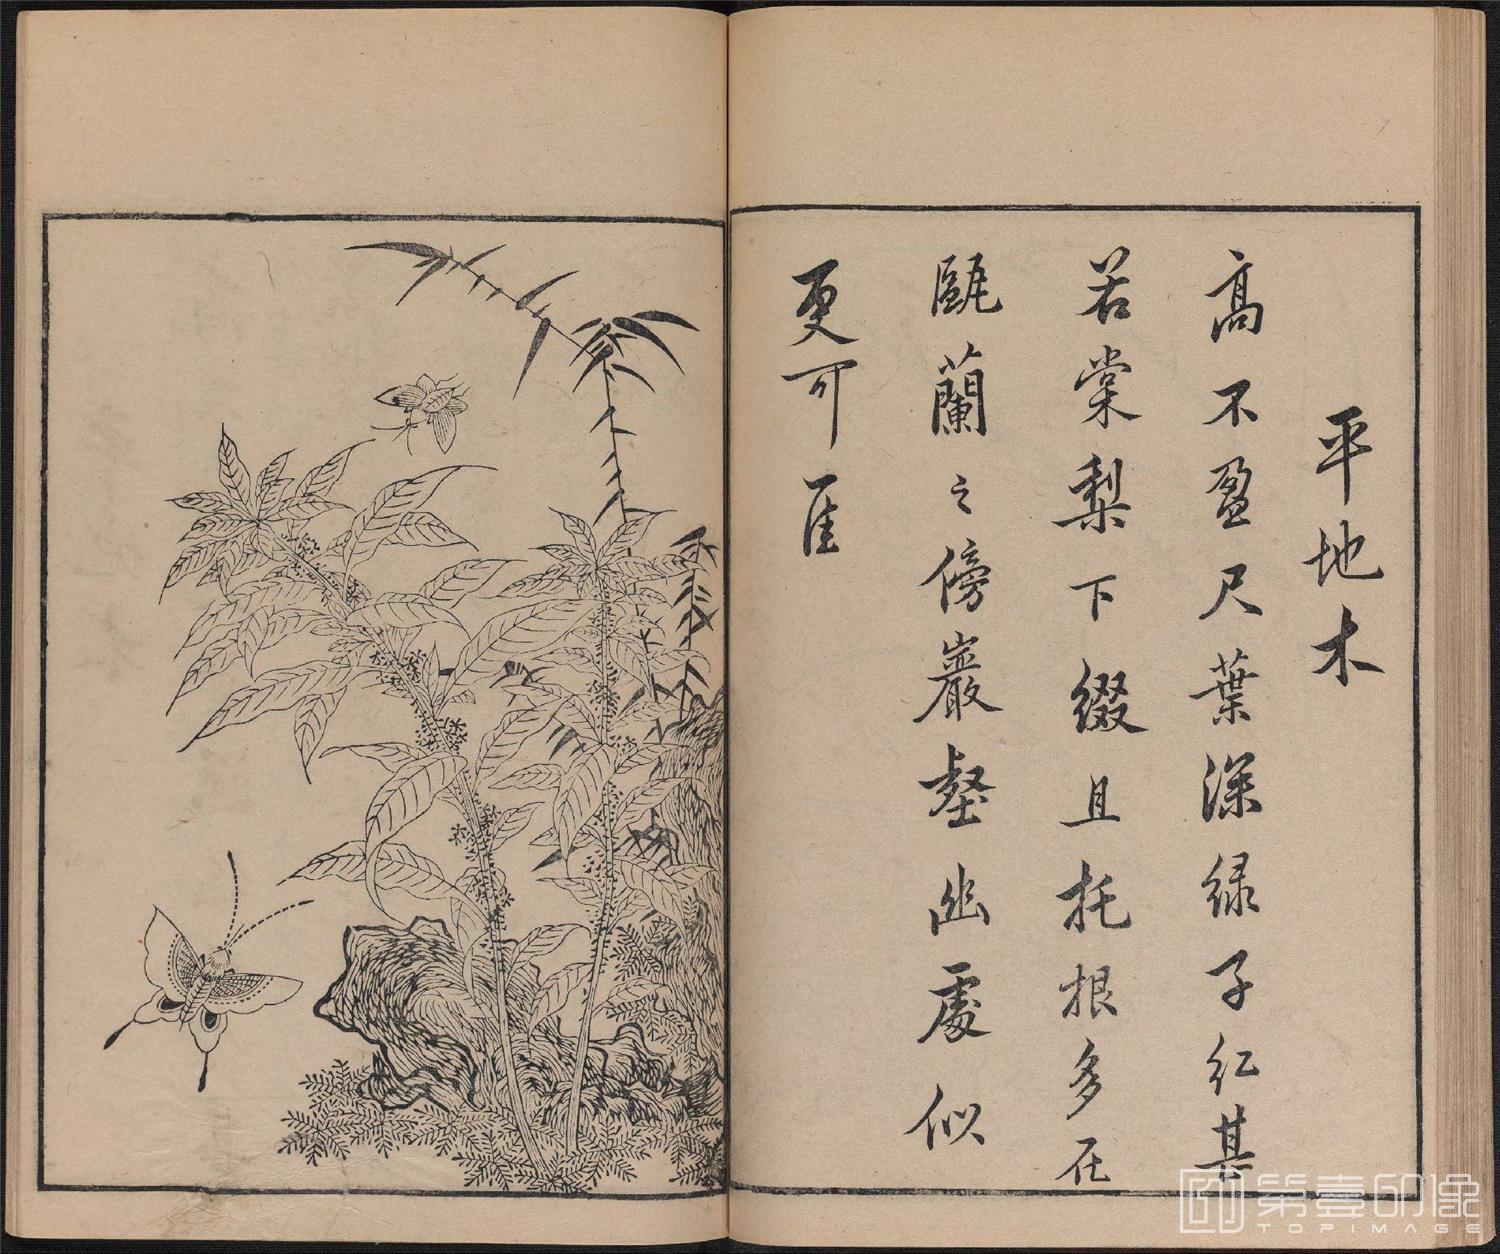 平地木
高不盈尺葉深綠子紅甚
若棠梨下綴且托根多在
甌蘭之傍巖壑幽處似
更可佳
第壹印像
TOPIMAGE